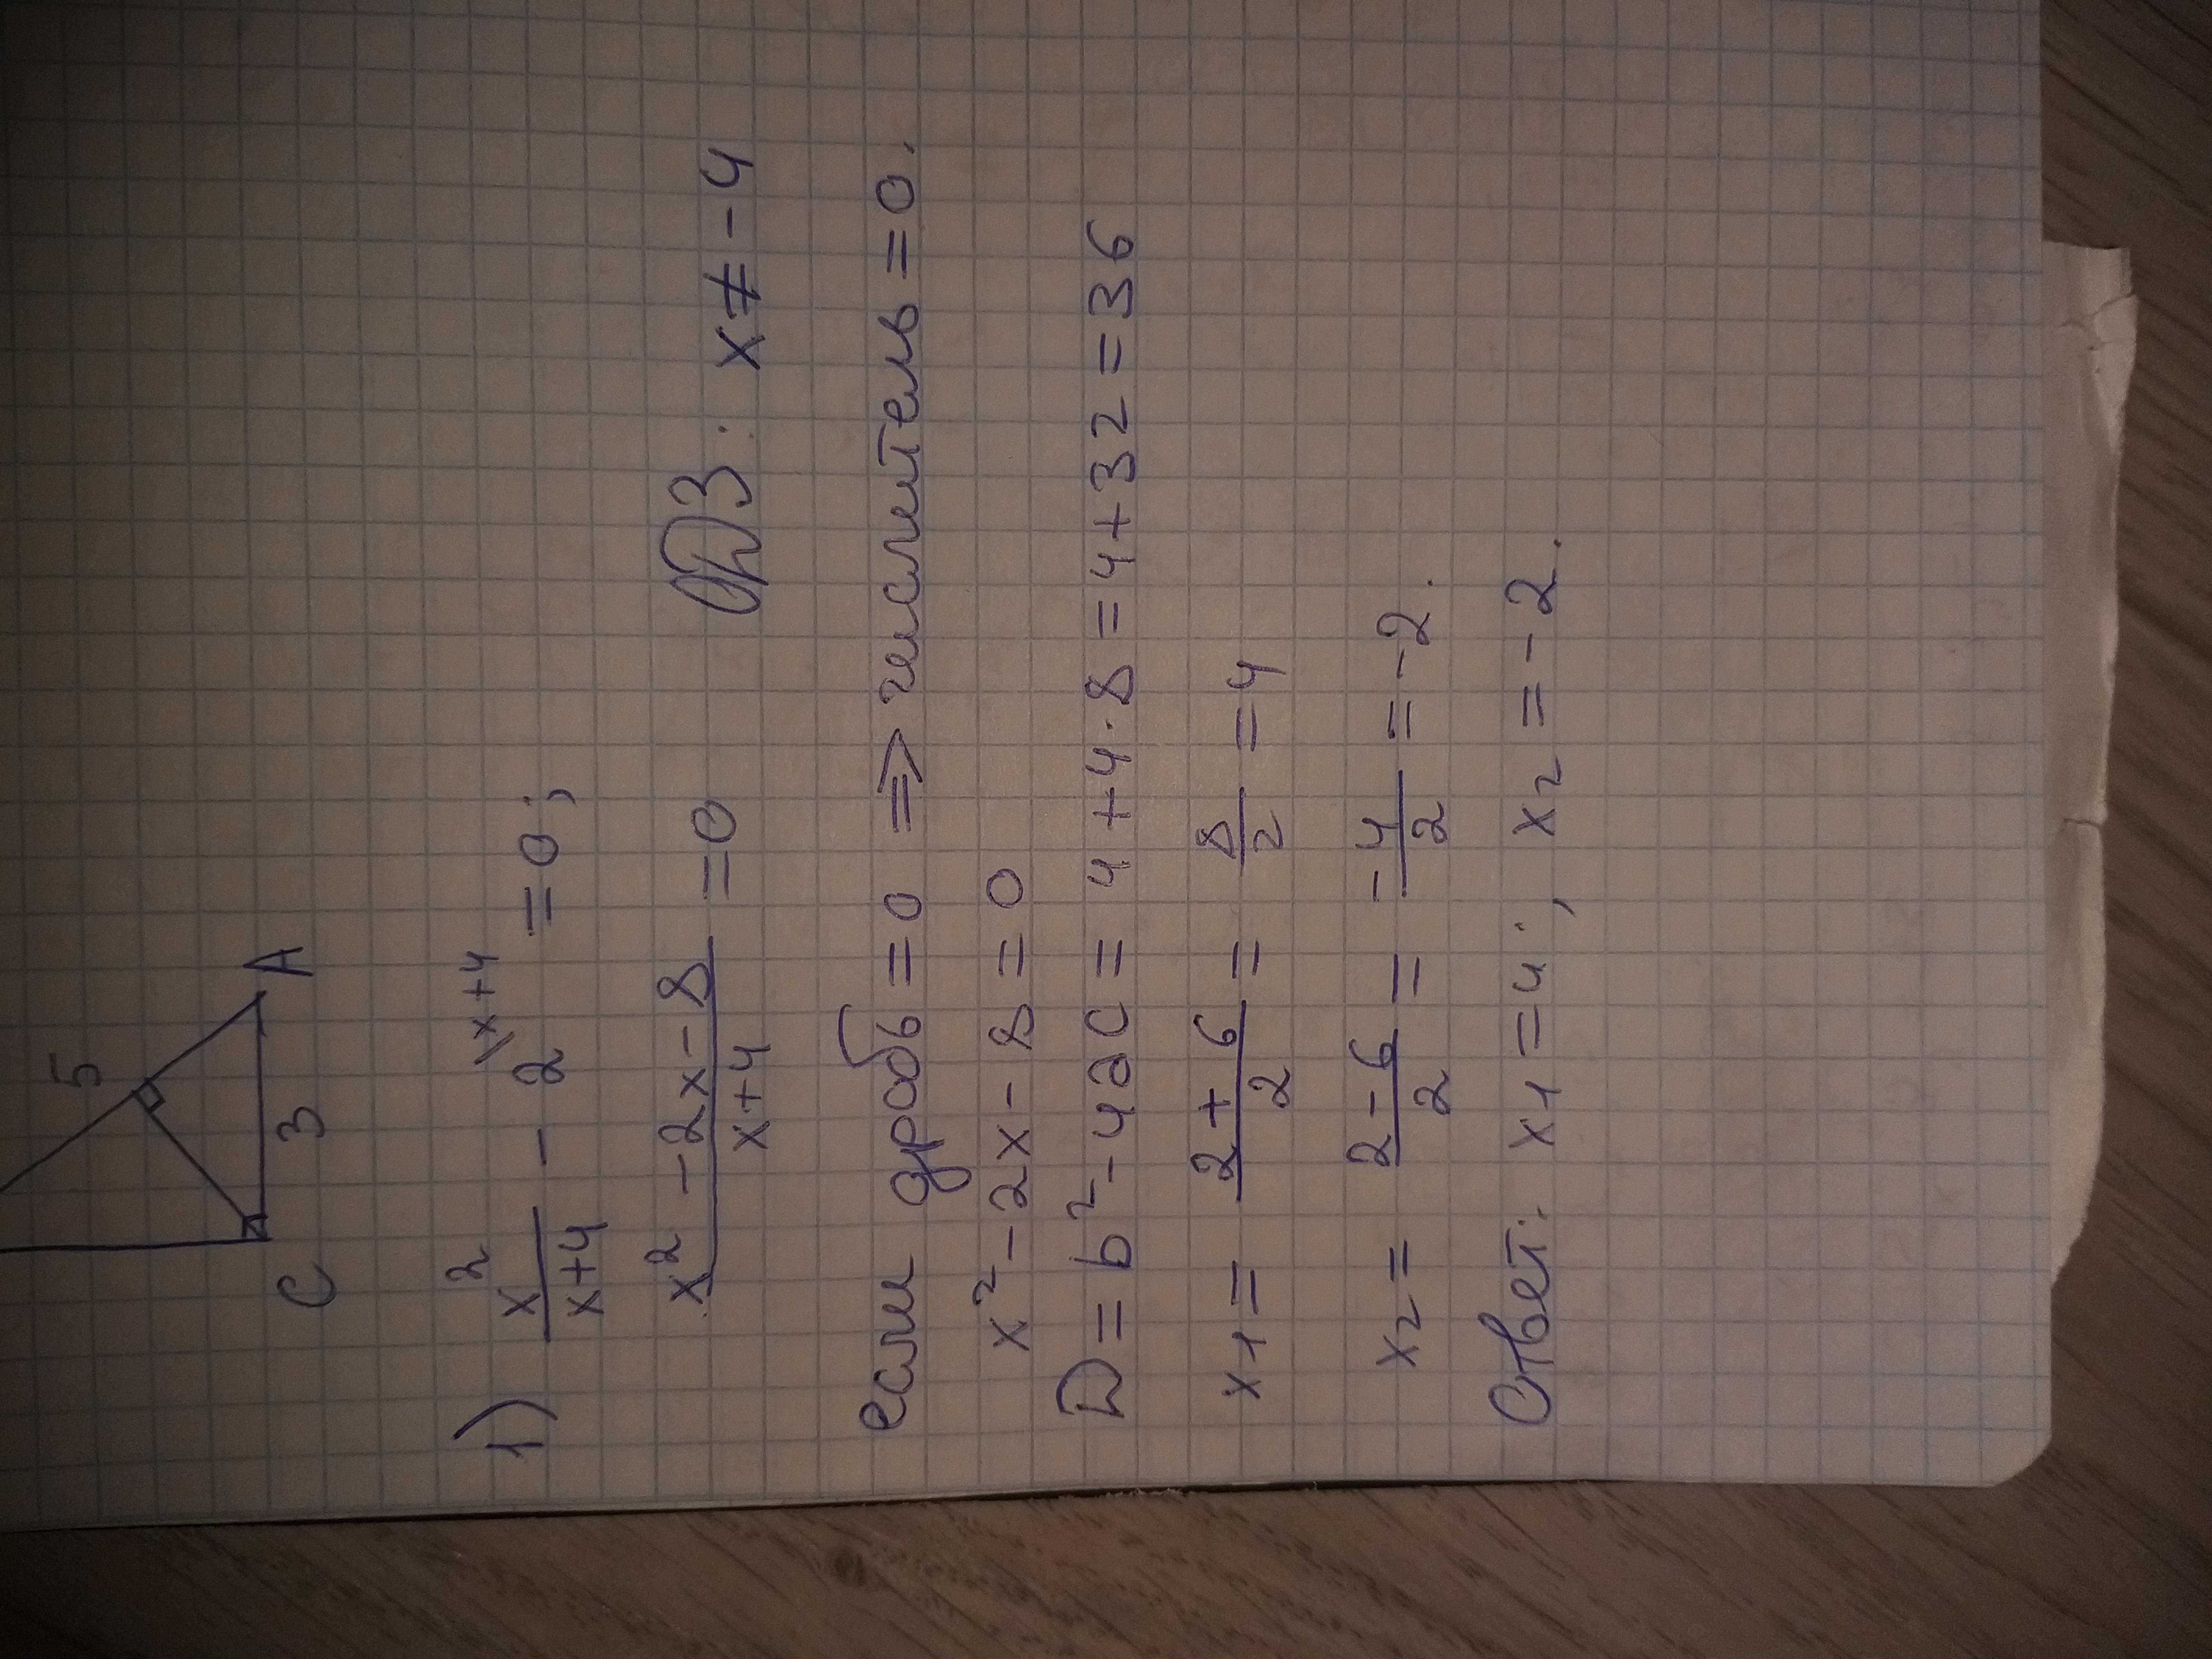 5
A
3
C
1) x²/(x+4) - 2 \x+4 = 0;
(x² - 2x - 8)/(x+4) = 0 ОДЗ: x ≠ -4
если дробь = 0 => числитель = 0.
x² - 2x - 8 = 0
D = b² - 4ac = 4 + 4·8 = 4 + 32 = 36
x₁ = (2+6)/2 = 8/2 = 4
x₂ = (2-6)/2 = -4/2 = -2.
Ответ: x₁ = 4; x₂ = -2.